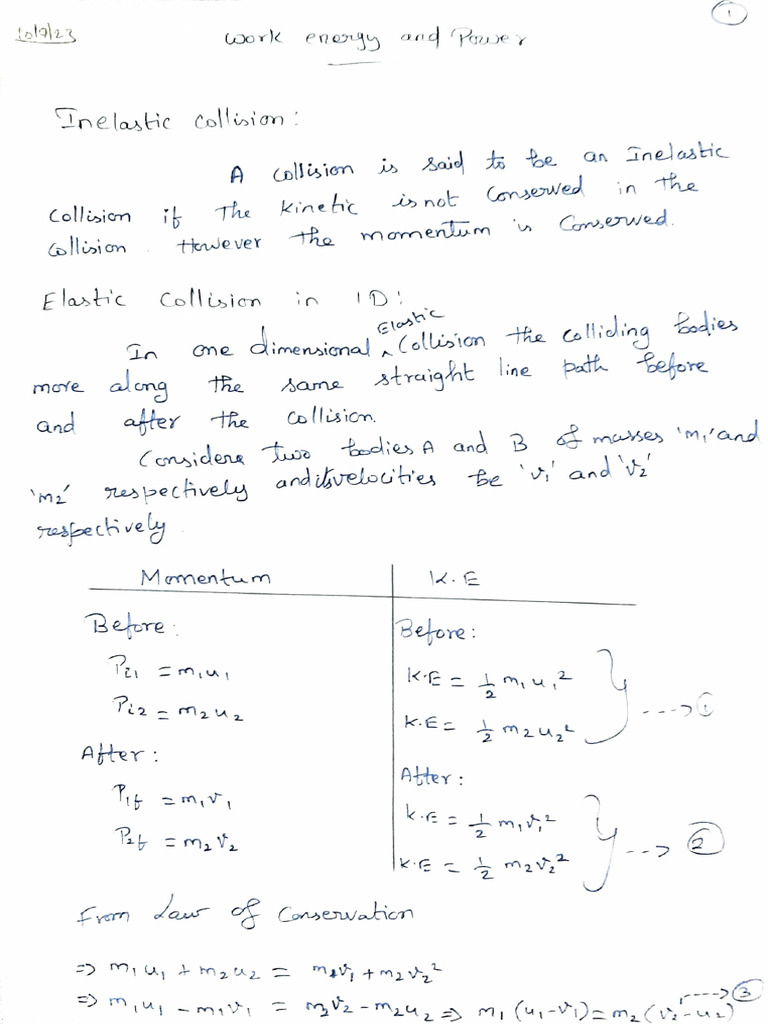 ①
10/9/23
Work energy and Power
Inelastic Collision:
A Collision is said to be an Inelastic
Collision if The kinetic is not Conserved in the
Collision. However the momentum is Conserved.
Elastic Collision in 1D:
Elastic
In one dimensional ^ Collision the colliding bodies
more along the same straight line path before
and after the collision.
Considere two bodies A and B of masses 'm₁' and
'm₂' respectively and its velocities be 'v₁' and 'v₂'
respectively.
Momentum | K.E
Before: | Before:
Pi1 = m₁u₁ | K.E = 1/2 m₁u₁² } ---> ①
Pi2 = m₂u₂ | K.E = 1/2 m₂u₂²
After: | After:
P1f = m₁v₁ | K.E = 1/2 m₁v₁² } --> ②
P2f = m₂v₂ | K.E = 1/2 m₂v₂²
From Law of Conservation
⇒ m₁u₁ + m₂u₂ = m₁v₁ + m₂v₂²
⇒ m₁u₁ - m₁v₁ = m₂v₂ - m₂u₂ ⇒ m₁(u₁-v₁) = m₂(v₂-u₂) ---> ③